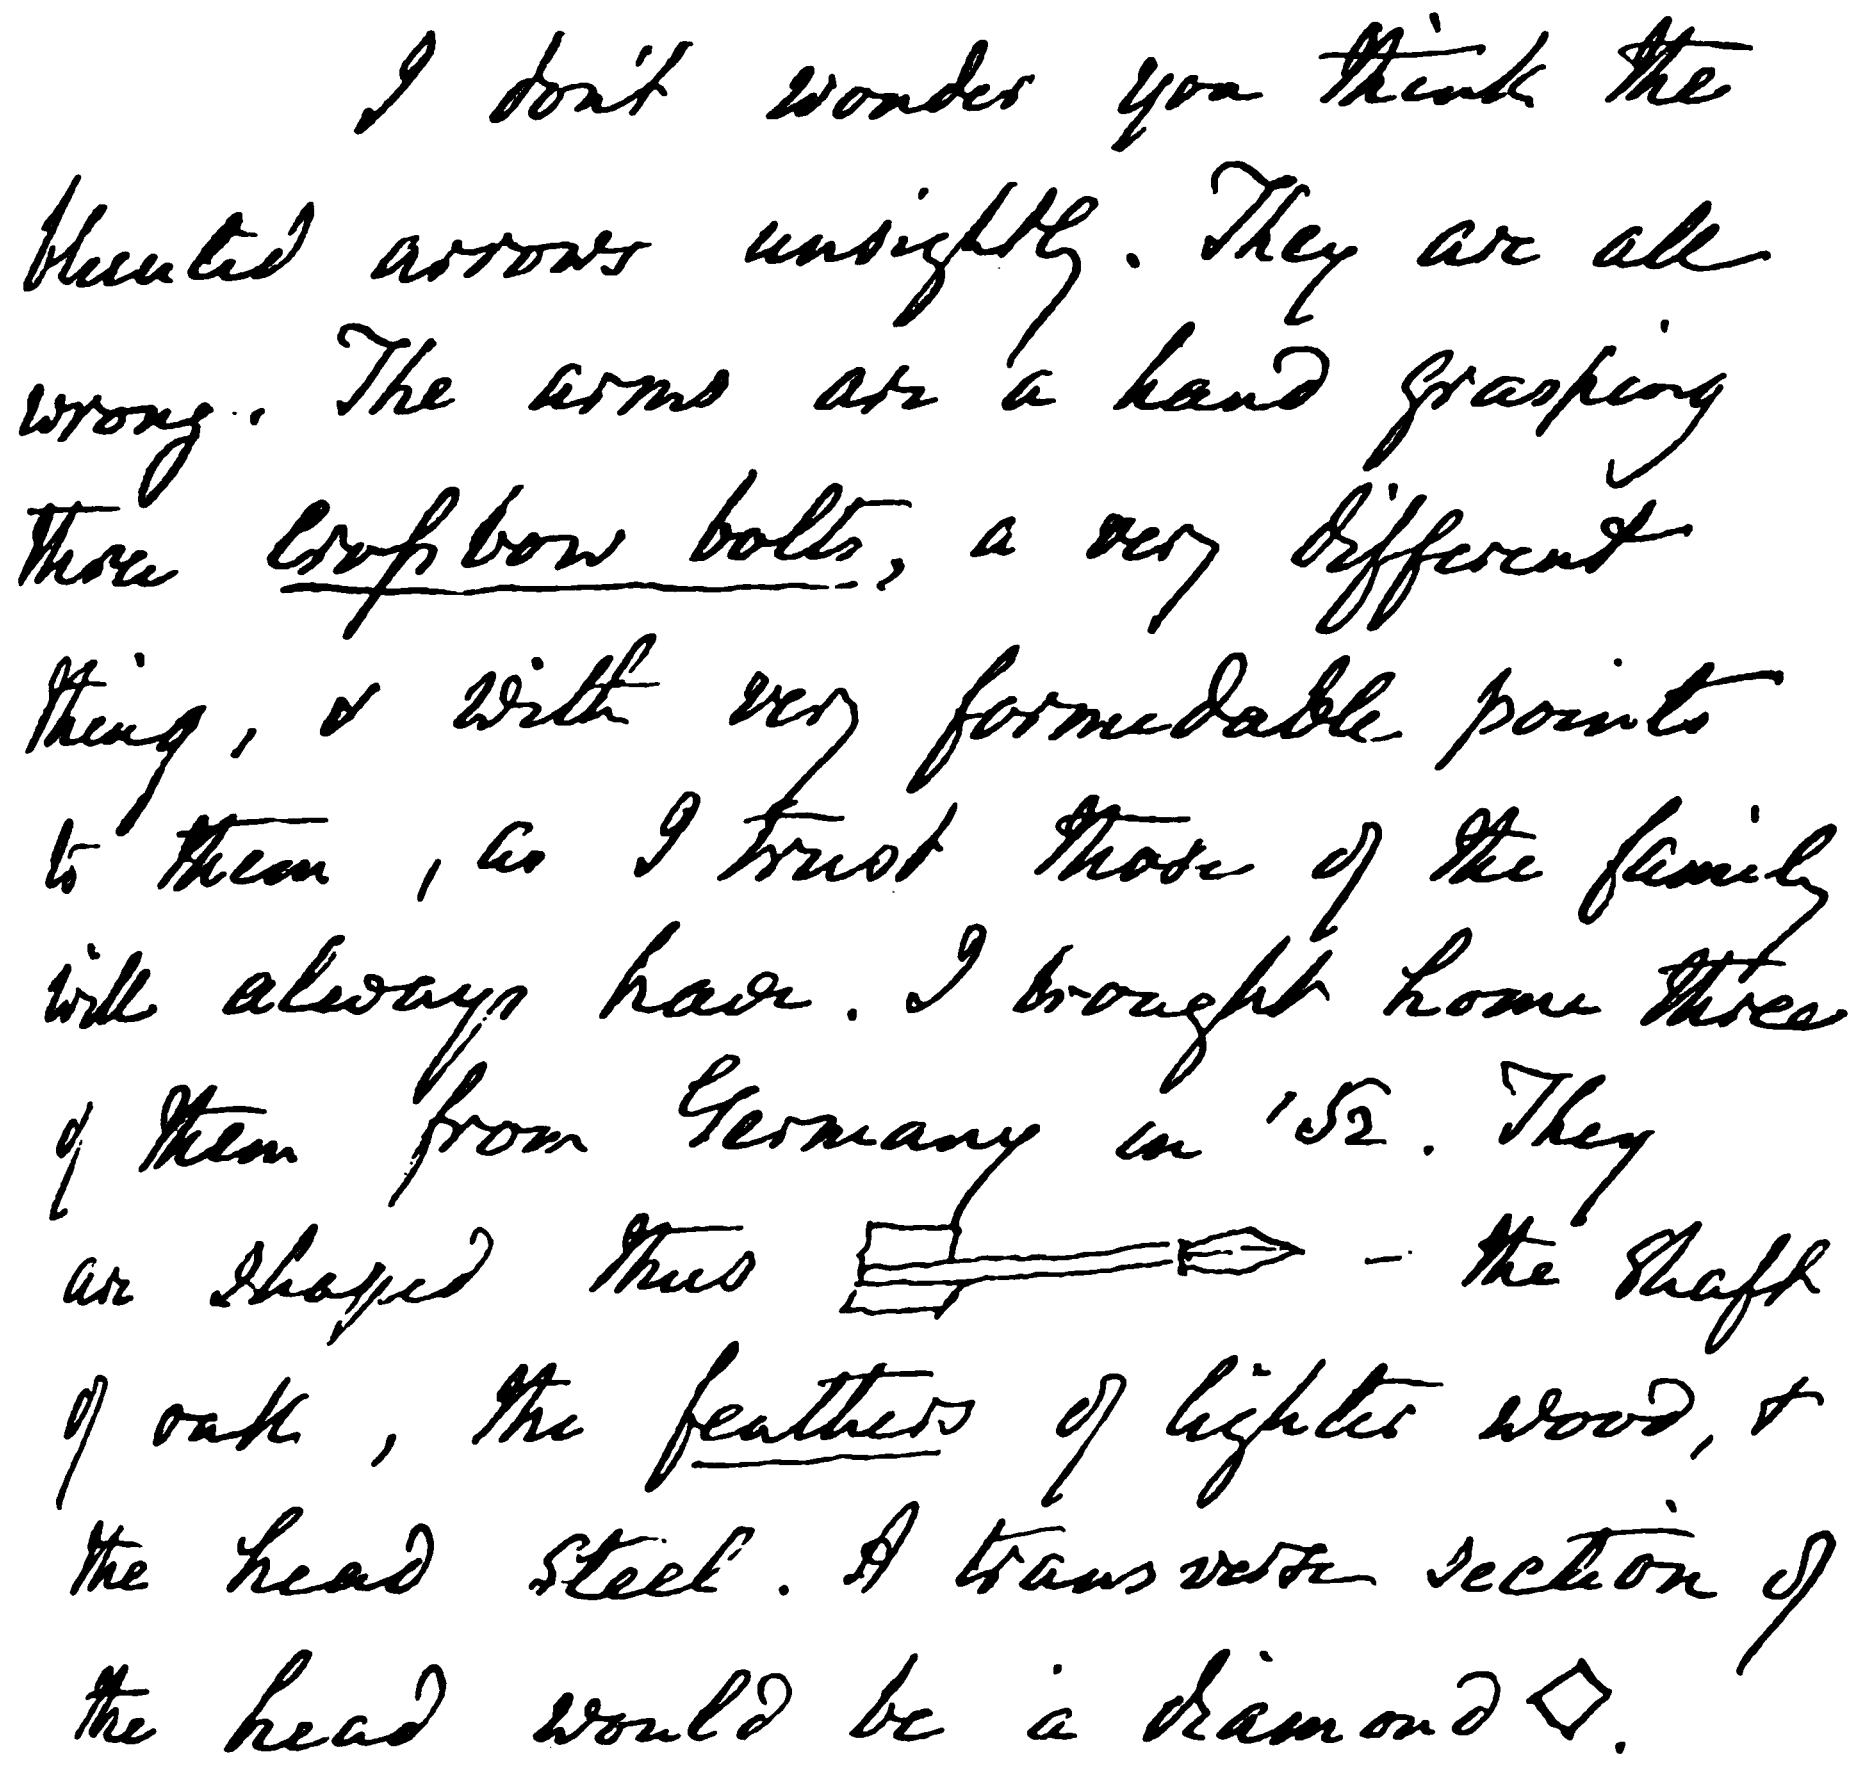 I don't wonder you think the
blunted arrows unsightly. They are all
wrong. The arms are a hand grasping
three crossbow bolts, a very different
thing, & with very formidable points
to them, as I trust those of the family
will always have. I brought home three
of them from Germany in '52. They
are shaped thus – the shaft
of oak, the feathers of lighter wood, &
the head steel. A transverse section of
the head would be a diamond ◇.